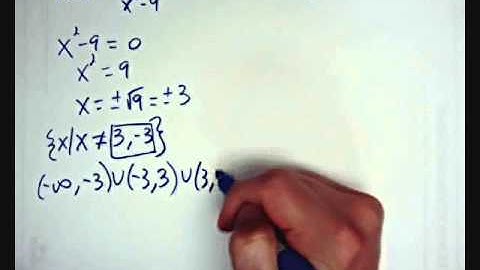 x-9
x²-9=0
x²=9
x=±√9=±3
{x/x≠3,-3}
(-∞,-3)∪(-3,3)∪(3,